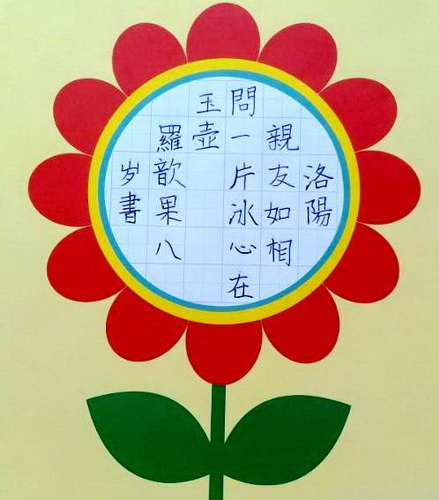 洛陽
親友如相
問一片冰心在
玉壺
羅歆果八
岁書